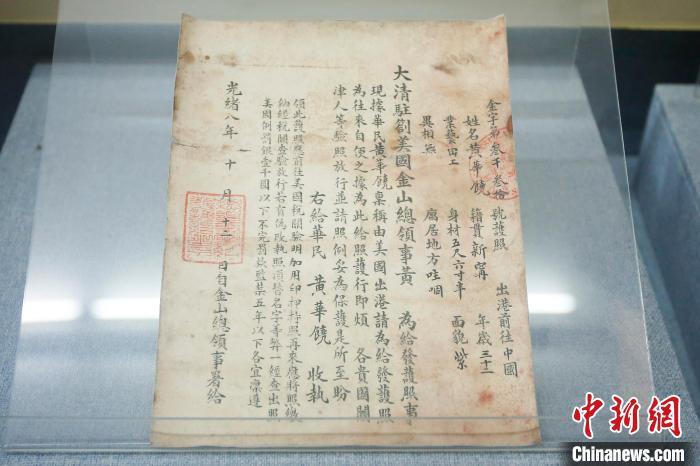 金字第叁千叁拾 號護照 出港前往中國
姓名黃華饒 籍貫新甯 年歲三十二
業藝田工 身材五尺六寸半 面貌紫
異相無 寓居地方
大清駐劄美國金山總領事黃 為給發護照事
現據華民黃華饒稟稱由美國出港請為給發護照
為往來自便之據為此給照護行即煩 各貴國關
津人等驗照放行並請照例妥為保護是所至盼
右給華民 黃華饒 收執
領此護照應前往美國稅關驗明加用印押持照再來應將照繳
納經稅關查驗放行若有偽改執照頂替名字等弊一經查出照
美國例罰銀壹千圓以下不完罰款監禁五年以下各宜凜遵
光緒八年十一月十二日自金山總領事署給
中新网
Chinanews.com